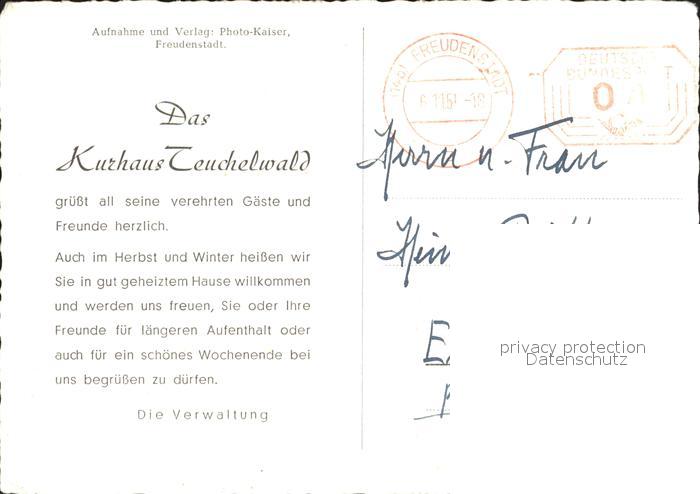 Aufnahme und Verlag: Photo-Kaiser,
Freudenstadt.
Das
Kurhaus Teuchelwald
grüßt all seine verehrten Gäste und
Freunde herzlich.
Auch im Herbst und Winter heißen wir
Sie in gut geheiztem Hause willkommen
und werden uns freuen, Sie oder Ihre
Freunde für längeren Aufenthalt oder
auch für ein schönes Wochenende bei
uns begrüßen zu dürfen.
Die Verwaltung
FREUDENSTADT
DEUTSCHE
BUNDESPOST
Herrn u. Frau
privacy protection
Datenschutz